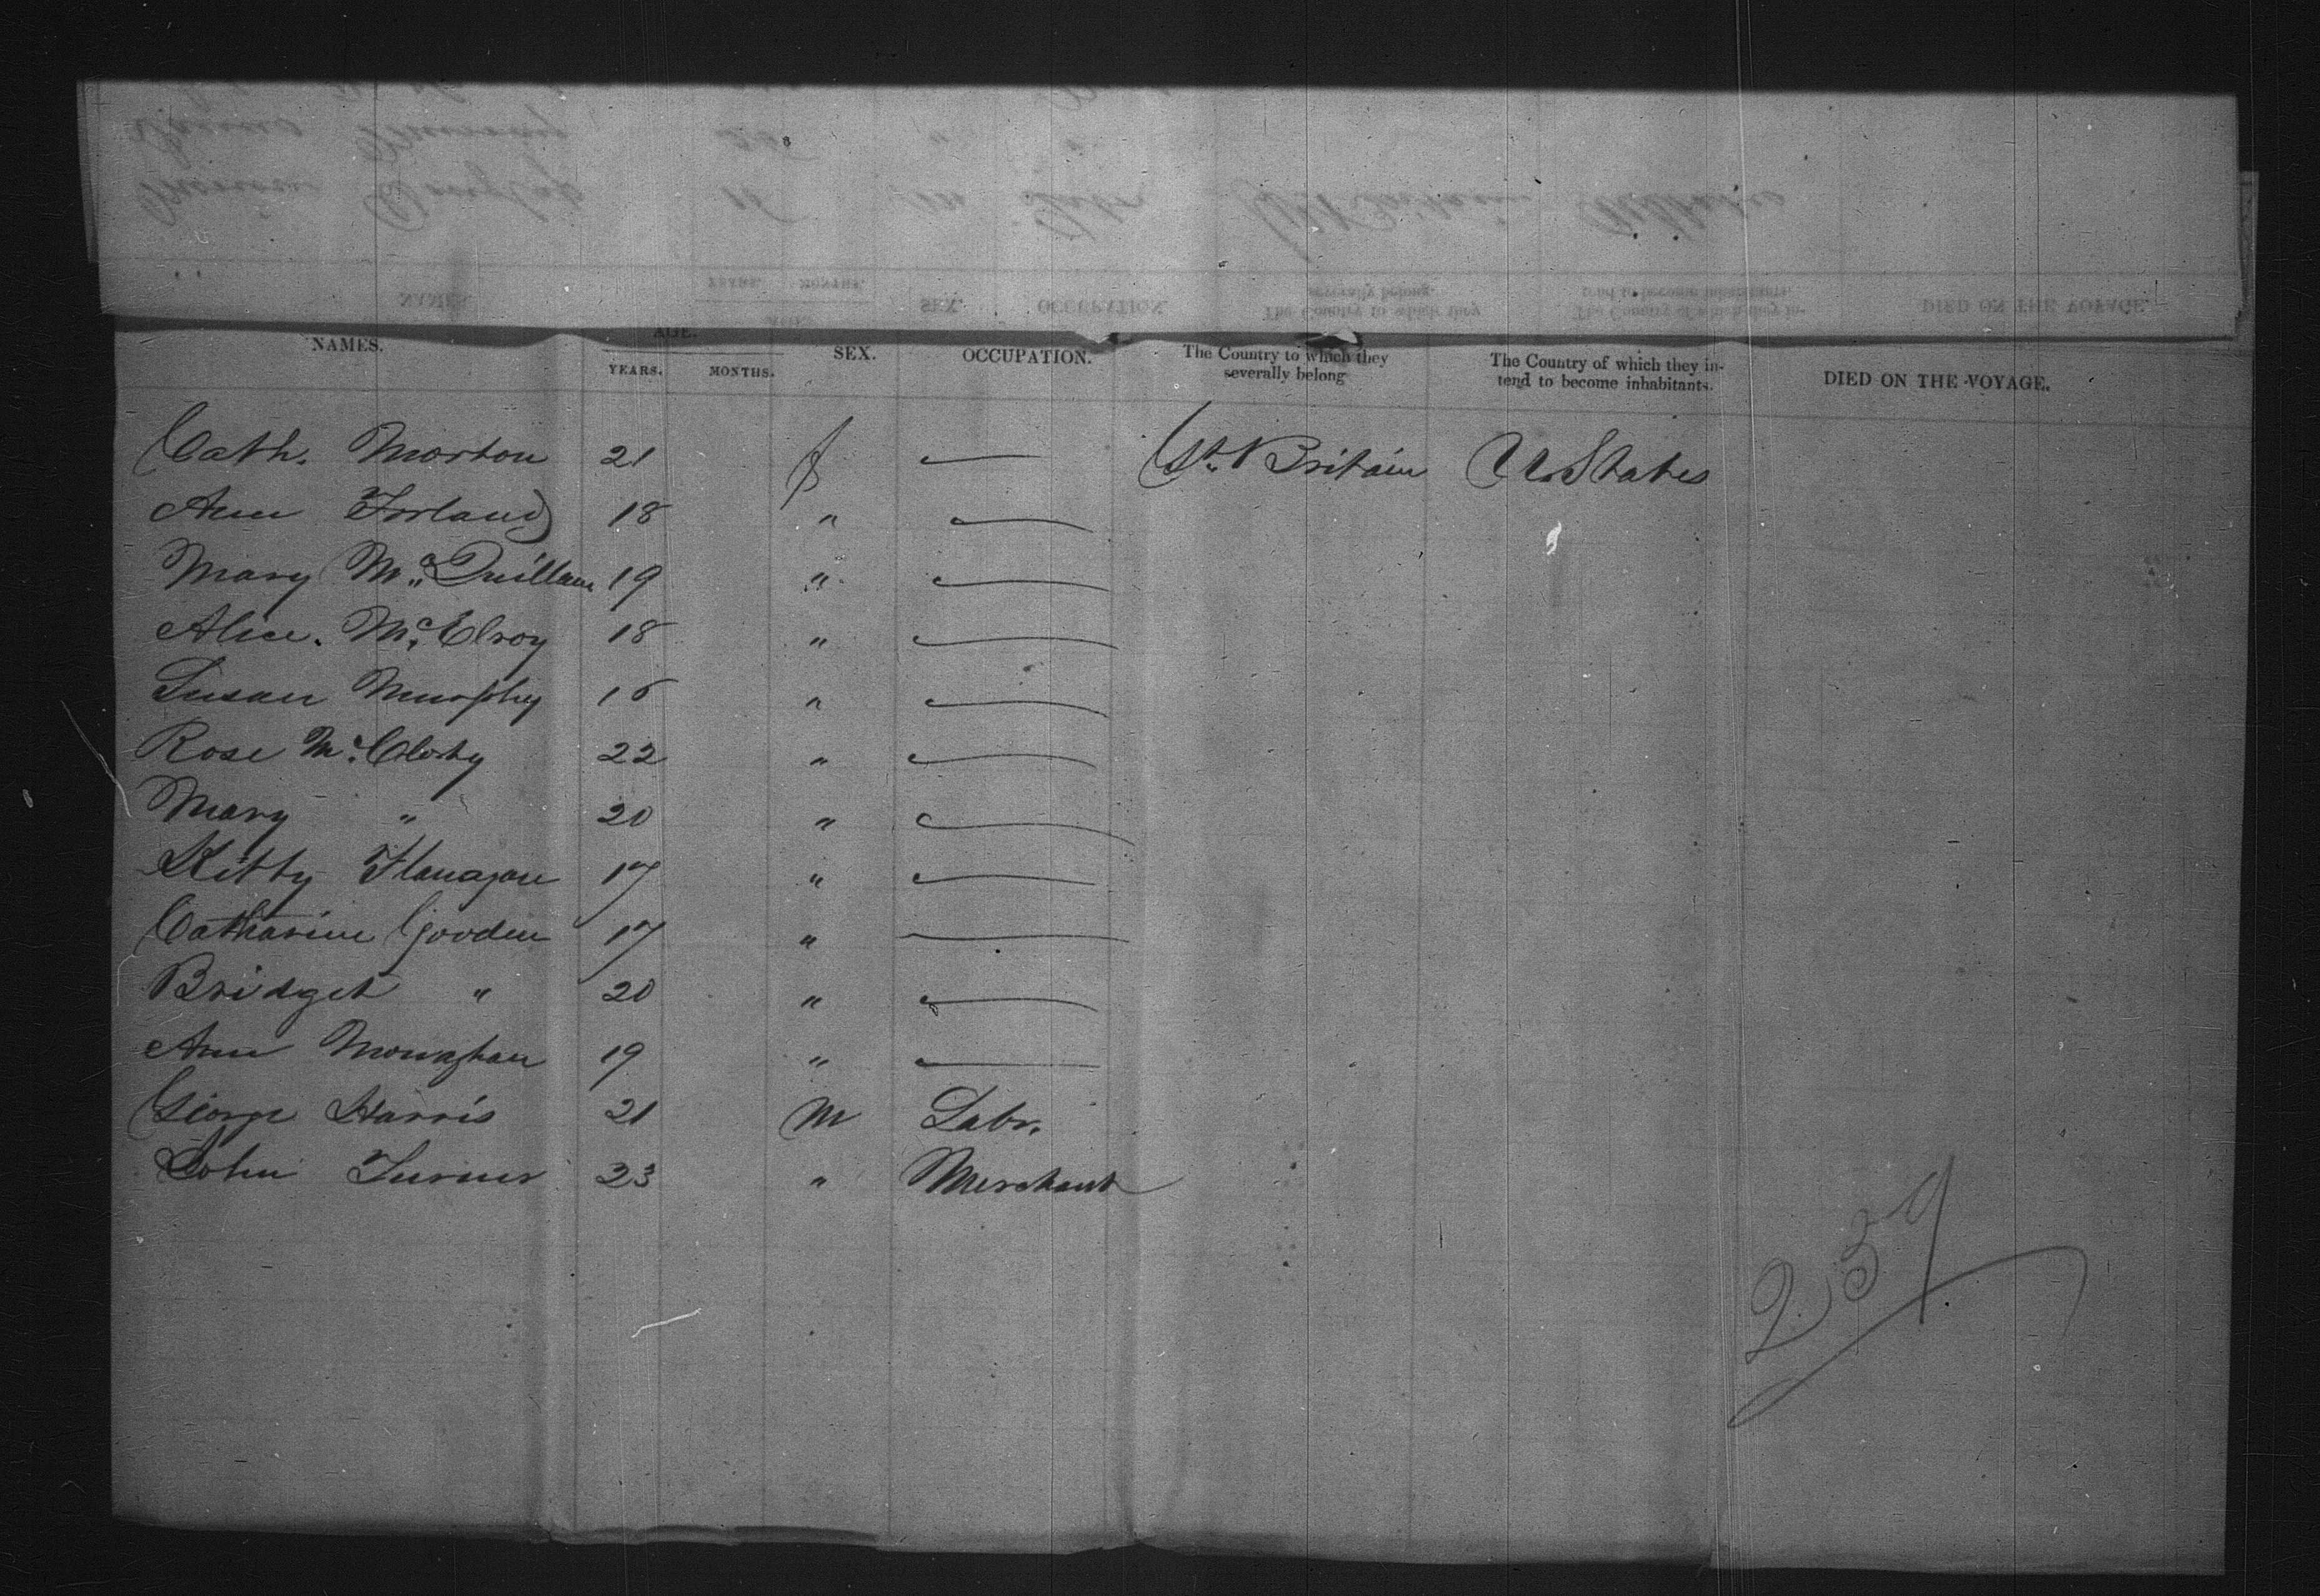 NAMES. AGE. SEX. OCCUPATION. The Country to which they severally belong The Country of which they in- tend to become inhabitants. DIED ON THE VOYAGE.
YEARS. MONTHS.
Cath. Morton 21 f — Gt. Britain U. States
Ann Forland 18 " —
Mary Mc.Quillan 19 " —
Alice. Mc.Elroy 18 " —
Susan Murphy 16 " —
Rose Mc. 22 " —
Mary " 20 " —
Kitty Flanagan 17 " —
Catharine Gooden 17 " —
Bridget " 20 " —
Ann Monaghan 19 " —
George Harris 21 M Labr.
John Turner 23 " Merchant
239